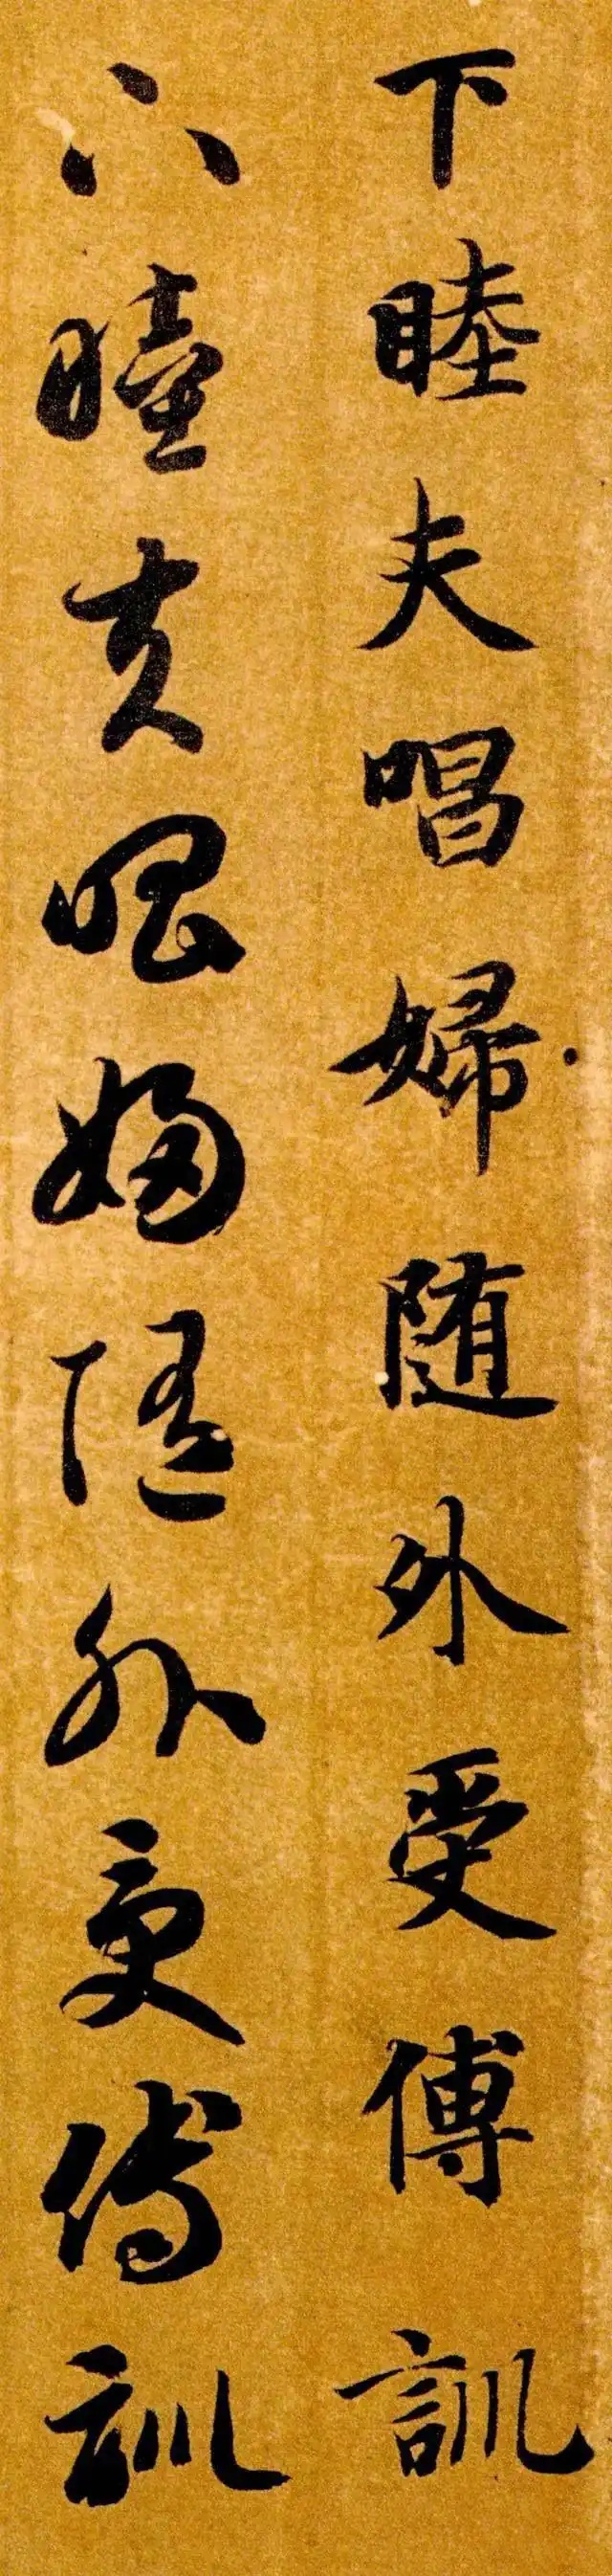 下睦夫唱婦随外受傅訓
下睦夫唱婦随外受傅訓